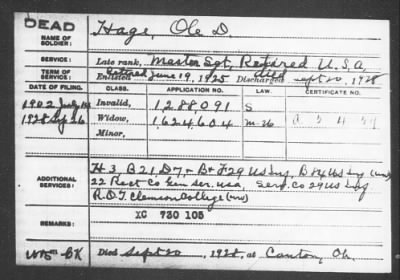 DEAD
NAME OF SOLDIER: Hage, Ole D.
SERVICE: Late rank, Master Sgt, Retired U.S.A.
TERM OF SERVICE: Enlisted Retired June 19, 1925 Discharged died Sept 20, 1928
DATE OF FILING. CLASS. APPLICATION NO. LAW. CERTIFICATE NO.
1902 July Invalid, 1288091 S
1928 26 Widow, 1624604 M-26
Minor,
ADDITIONAL SERVICES: H 3, B 21, D 7, & B & F 29 US Inf, US Inf
22 Rect Co Gen Ser. USA, Serv. Co 29 US Inf
R.O.T. Clemson College
REMARKS: XC 730 105
Died Sept 20, 1928, at Canton, Oh.